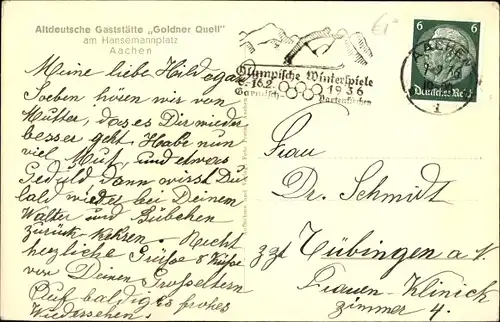 Altdeutsche Gaststätte „Goldner Quell"
am Hansemannplatz
Aachen
Meine liebe Hildegard
Soeben hören wir von
Mutter, das es Dir wieder
besser geht. Habe nun
viel Mut, und etwas
Geduld dann wirst Du
bald wieder bei Deinem
Walter und Bübchen
zurück kehren. Recht
herzliche Grüße & Küsse
von Deinen Großeltern
Auf baldiges frohes
Wiedersehen.
Olympische Winterspiele
6.-16.2. 1936
Garmisch- Partenkirchen
6 6
Deutsches Reich
AACHEN
1
Frau
Dr. Schmidt
zzt Tübingen a. N.
Frauen-Klinick
Zimmer 4.